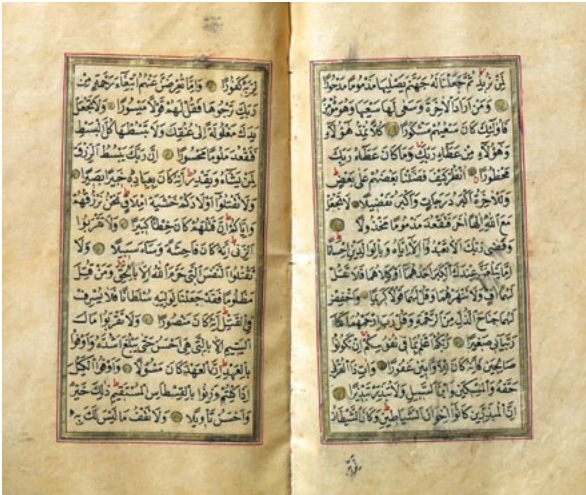 لِمَنْ نُرِيدُ ثُمَّ جَعَلْنَا لَهُ جَهَنَّمَ يَصْلٰيهَا مَذْمُومًا مَدْحُورًا
وَمَنْ اَرَادَ الْاٰخِرَةَ وَسَعٰى لَهَا سَعْيَهَا وَهُوَ مُؤْمِنٌ
فَاُولٰئِكَ كَانَ سَعْيُهُمْ مَشْكُورًا كُلًّا نُمِدُّ هٰؤُلَاءِ
وَهٰؤُلَاءِ مِنْ عَطَاءِ رَبِّكَ وَمَا كَانَ عَطَاءُ رَبِّكَ
مَحْظُورًا اُنْظُرْ كَيْفَ فَضَّلْنَا بَعْضَهُمْ عَلٰى بَعْضٍ
وَلَلْاٰخِرَةُ اَكْبَرُ دَرَجَاتٍ وَاَكْبَرُ تَفْضِيلًا لَا تَجْعَلْ
مَعَ اللّٰهِ اِلٰهًا اٰخَرَ فَتَقْعُدَ مَذْمُومًا مَخْذُولًا
وَقَضٰى رَبُّكَ اَلَّا تَعْبُدُوا اِلَّا اِيَّاهُ وَبِالْوَالِدَيْنِ اِحْسَانًا
اِمَّا يَبْلُغَنَّ عِنْدَكَ الْكِبَرَ اَحَدُهُمَا اَوْ كِلَاهُمَا فَلَا تَقُلْ
لَهُمَا اُفٍّ وَلَا تَنْهَرْهُمَا وَقُلْ لَهُمَا قَوْلًا كَرِيمًا وَاخْفِضْ
لَهُمَا جَنَاحَ الذُّلِّ مِنَ الرَّحْمَةِ وَقُلْ رَبِّ ارْحَمْهُمَا كَمَا
رَبَّيَانِي صَغِيرًا رَبُّكُمْ اَعْلَمُ بِمَا فِي نُفُوسِكُمْ اِنْ تَكُونُوا
صَالِحِينَ فَاِنَّهُ كَانَ لِلْاَوَّابِينَ غَفُورًا وَاٰتِ ذَا الْقُرْبٰى
حَقَّهُ وَالْمِسْكِينَ وَابْنَ السَّبِيلِ وَلَا تُبَذِّرْ تَبْذِيرًا
اِنَّ الْمُبَذِّرِينَ كَانُوا اِخْوَانَ الشَّيَاطِينِ وَكَانَ الشَّيْطَانُ
لِرَبِّهِ
لِرَبِّهِ كَفُورًا وَاِمَّا تُعْرِضَنَّ عَنْهُمُ ابْتِغَاءَ رَحْمَةٍ مِنْ
رَبِّكَ تَرْجُوهَا فَقُلْ لَهُمْ قَوْلًا مَيْسُورًا وَلَا تَجْعَلْ
يَدَكَ مَغْلُولَةً اِلٰى عُنُقِكَ وَلَا تَبْسُطْهَا كُلَّ الْبَسْطِ
فَتَقْعُدَ مَلُومًا مَحْسُورًا اِنَّ رَبَّكَ يَبْسُطُ الرِّزْقَ
لِمَنْ يَشَاءُ وَيَقْدِرُ اِنَّهُ كَانَ بِعِبَادِهِ خَبِيرًا بَصِيرًا
وَلَا تَقْتُلُوا اَوْلَادَكُمْ خَشْيَةَ اِمْلَاقٍ نَحْنُ نَرْزُقُهُمْ
وَاِيَّاكُمْ اِنَّ قَتْلَهُمْ كَانَ خِطْئًا كَبِيرًا وَلَا تَقْرَبُوا
الزِّنٰى اِنَّهُ كَانَ فَاحِشَةً وَسَاءَ سَبِيلًا وَلَا
تَقْتُلُوا النَّفْسَ الَّتِي حَرَّمَ اللّٰهُ اِلَّا بِالْحَقِّ وَمَنْ قُتِلَ
مَظْلُومًا فَقَدْ جَعَلْنَا لِوَلِيِّهِ سُلْطَانًا فَلَا يُسْرِفْ
فِي الْقَتْلِ اِنَّهُ كَانَ مَنْصُورًا وَلَا تَقْرَبُوا مَالَ
الْيَتِيمِ اِلَّا بِالَّتِي هِيَ اَحْسَنُ حَتّٰى يَبْلُغَ اَشُدَّهُ وَاَوْفُوا
بِالْعَهْدِ اِنَّ الْعَهْدَ كَانَ مَسْؤُلًا وَاَوْفُوا الْكَيْلَ
اِذَا كِلْتُمْ وَزِنُوا بِالْقِسْطَاسِ الْمُسْتَقِيمِ ذٰلِكَ خَيْرٌ
وَاَحْسَنُ تَاْوِيلًا وَلَا تَقْفُ مَا لَيْسَ لَكَ بِهِ